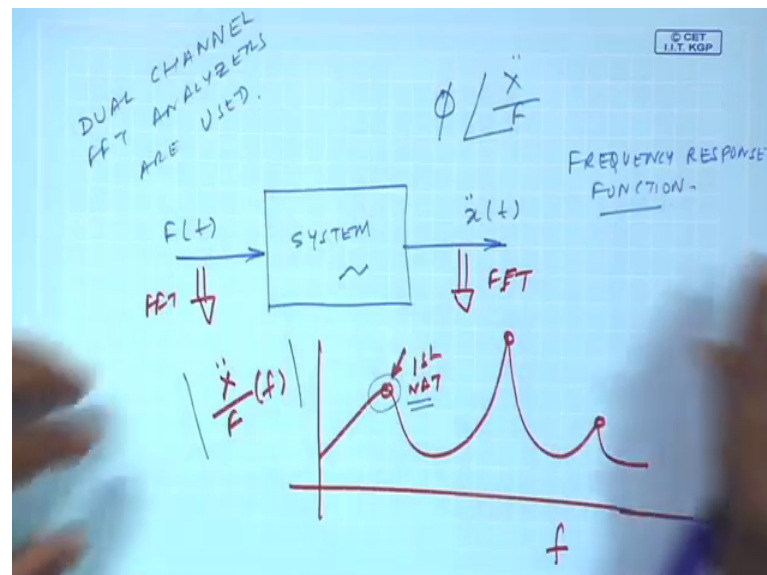 © CET
I.I.T. KGP
DUAL CHANNEL
FFT ANALYZERS
ARE USED.
φ ∠ Ẍ/F
FREQUENCY RESPONSE
FUNCTION-
F(t)
SYSTEM
ẍ(t)
FFT
FFT
| Ẍ/F (f) |
1st
NAT
f